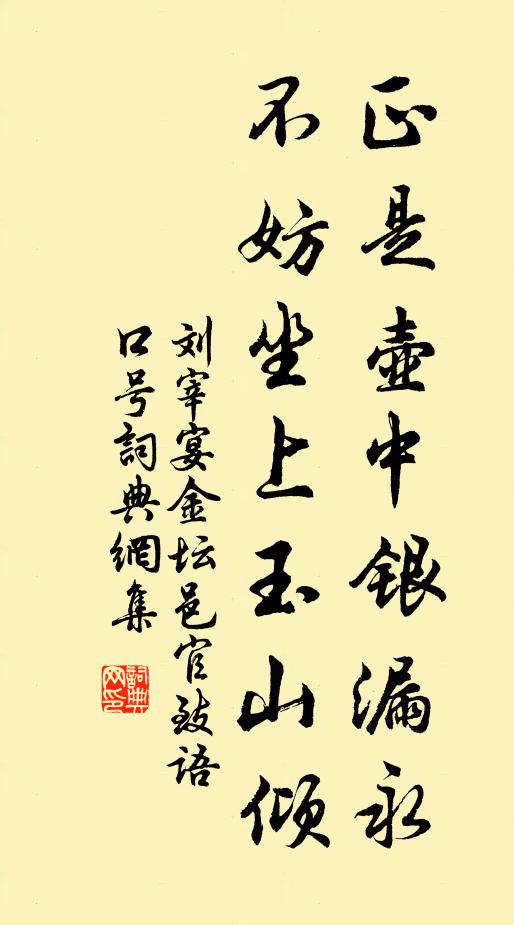 正是壺中銀漏永
不妨坐上玉山傾
刘宰宴金坛邑官致语
口号詞典網集
詞典
网印